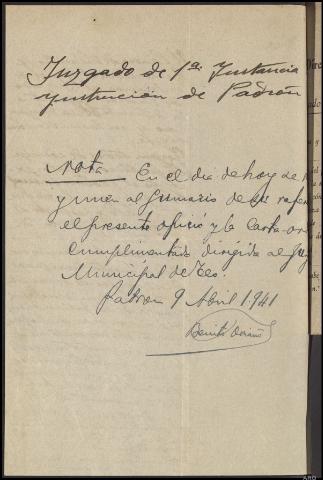 Juzgado de 1ª Instancia
Instrucción de Padrón
Nota En el dia de hoy se
y unen al sumario de su refe
el presente oficio y la carta-or
cumplimentada dirigida al Juz
Municipal de Teo.
Padron 9 Abril 1.941
Benito